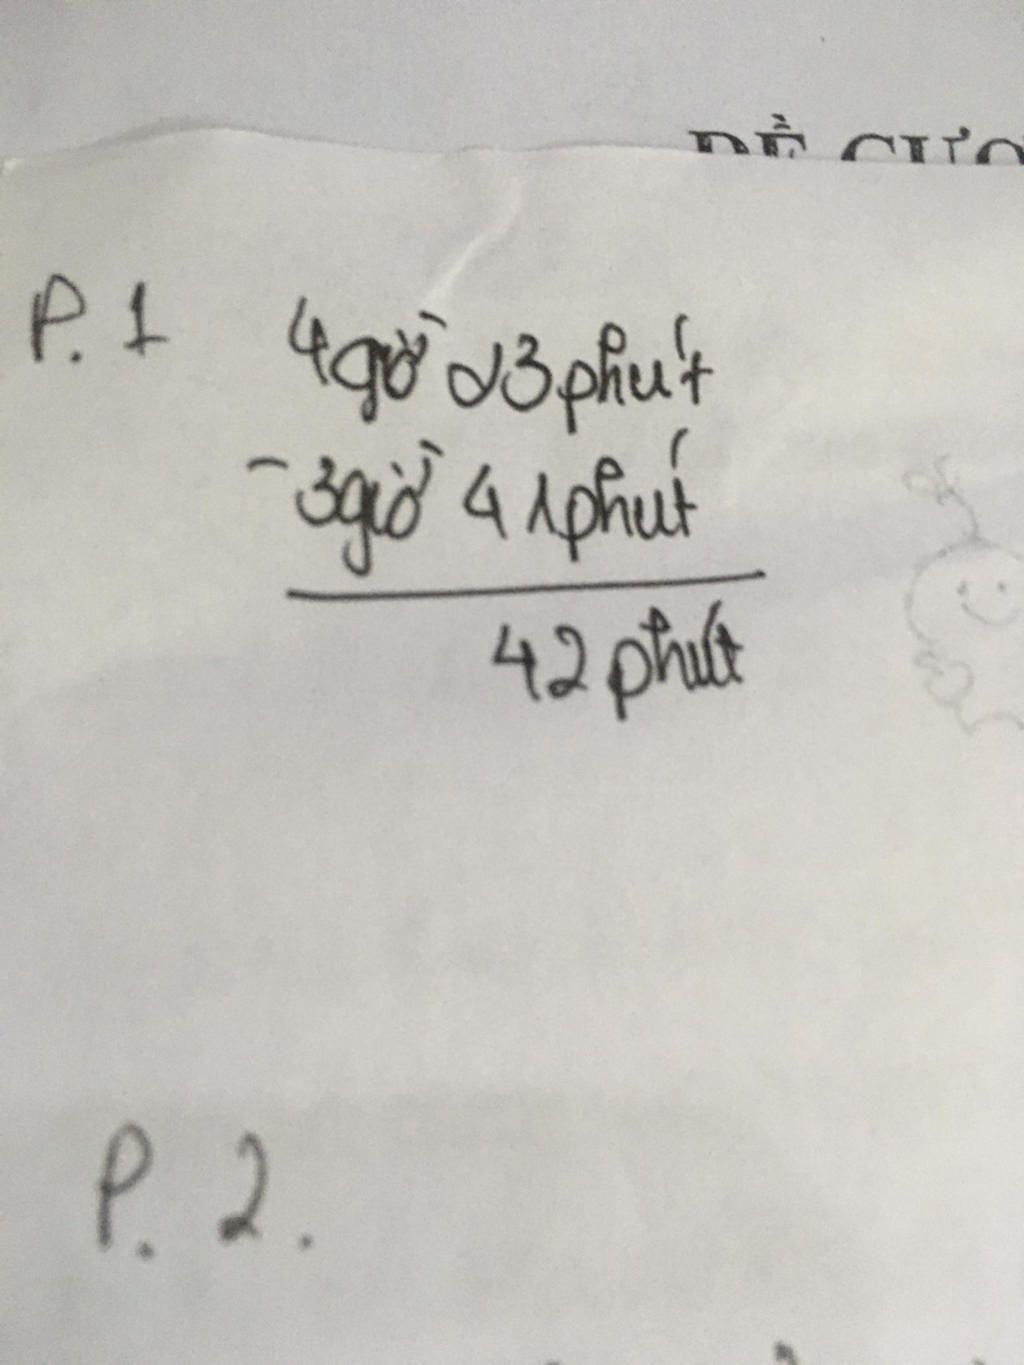 ĐỀ CƯƠ
P. 1
4 giờ 23 phút
- 3 giờ 41 phút
42 phút
P. 2.